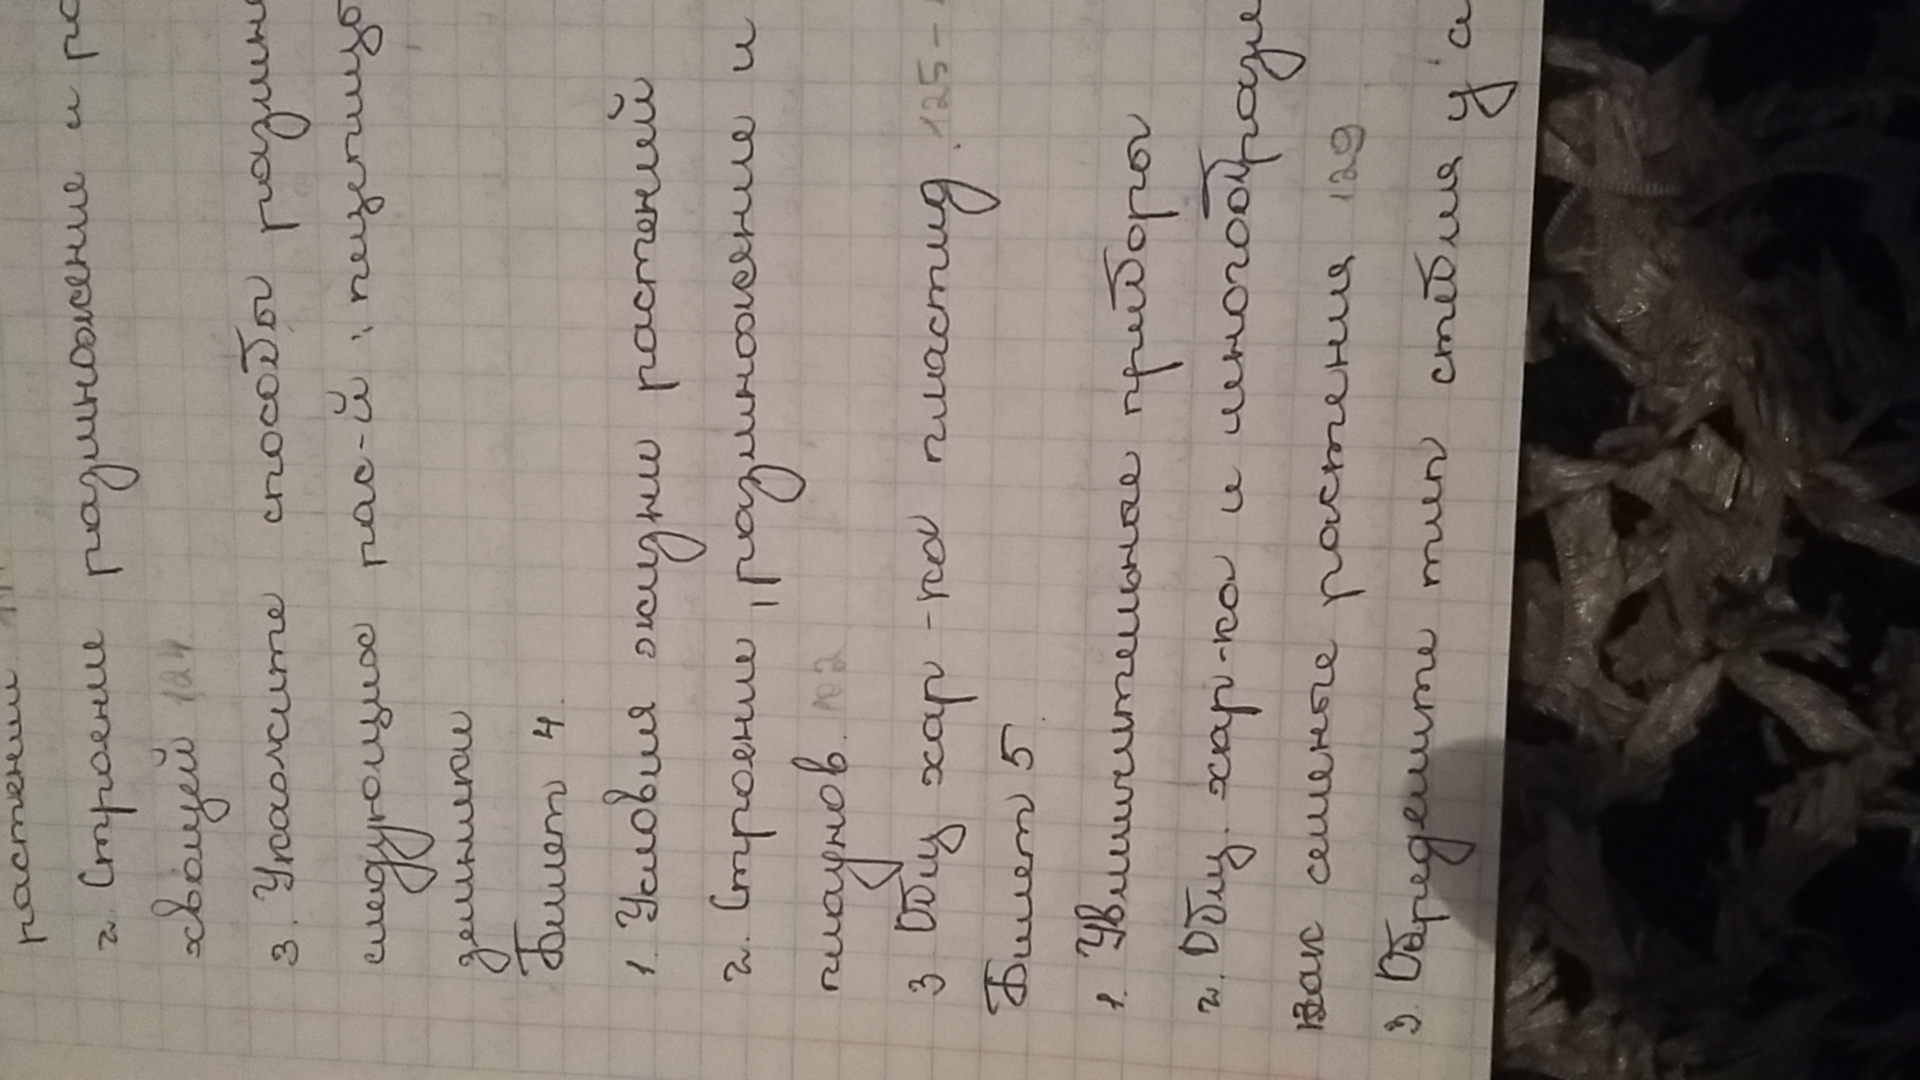 растении
2. Строение размножение и
хвощей 124
3. Укажите способы
следующих рас-й: пецепицо
земляники
Билет 4.
1. Условия жизни растений
2. Строение, размножение и
плаунов. 102
3 Общ хар-ка пластид. 125-
Билет 5
1. Увеличительные приборы
2. Общ. хар-ка и многообрази
семеные растения 129
3. Определите тип стебля у